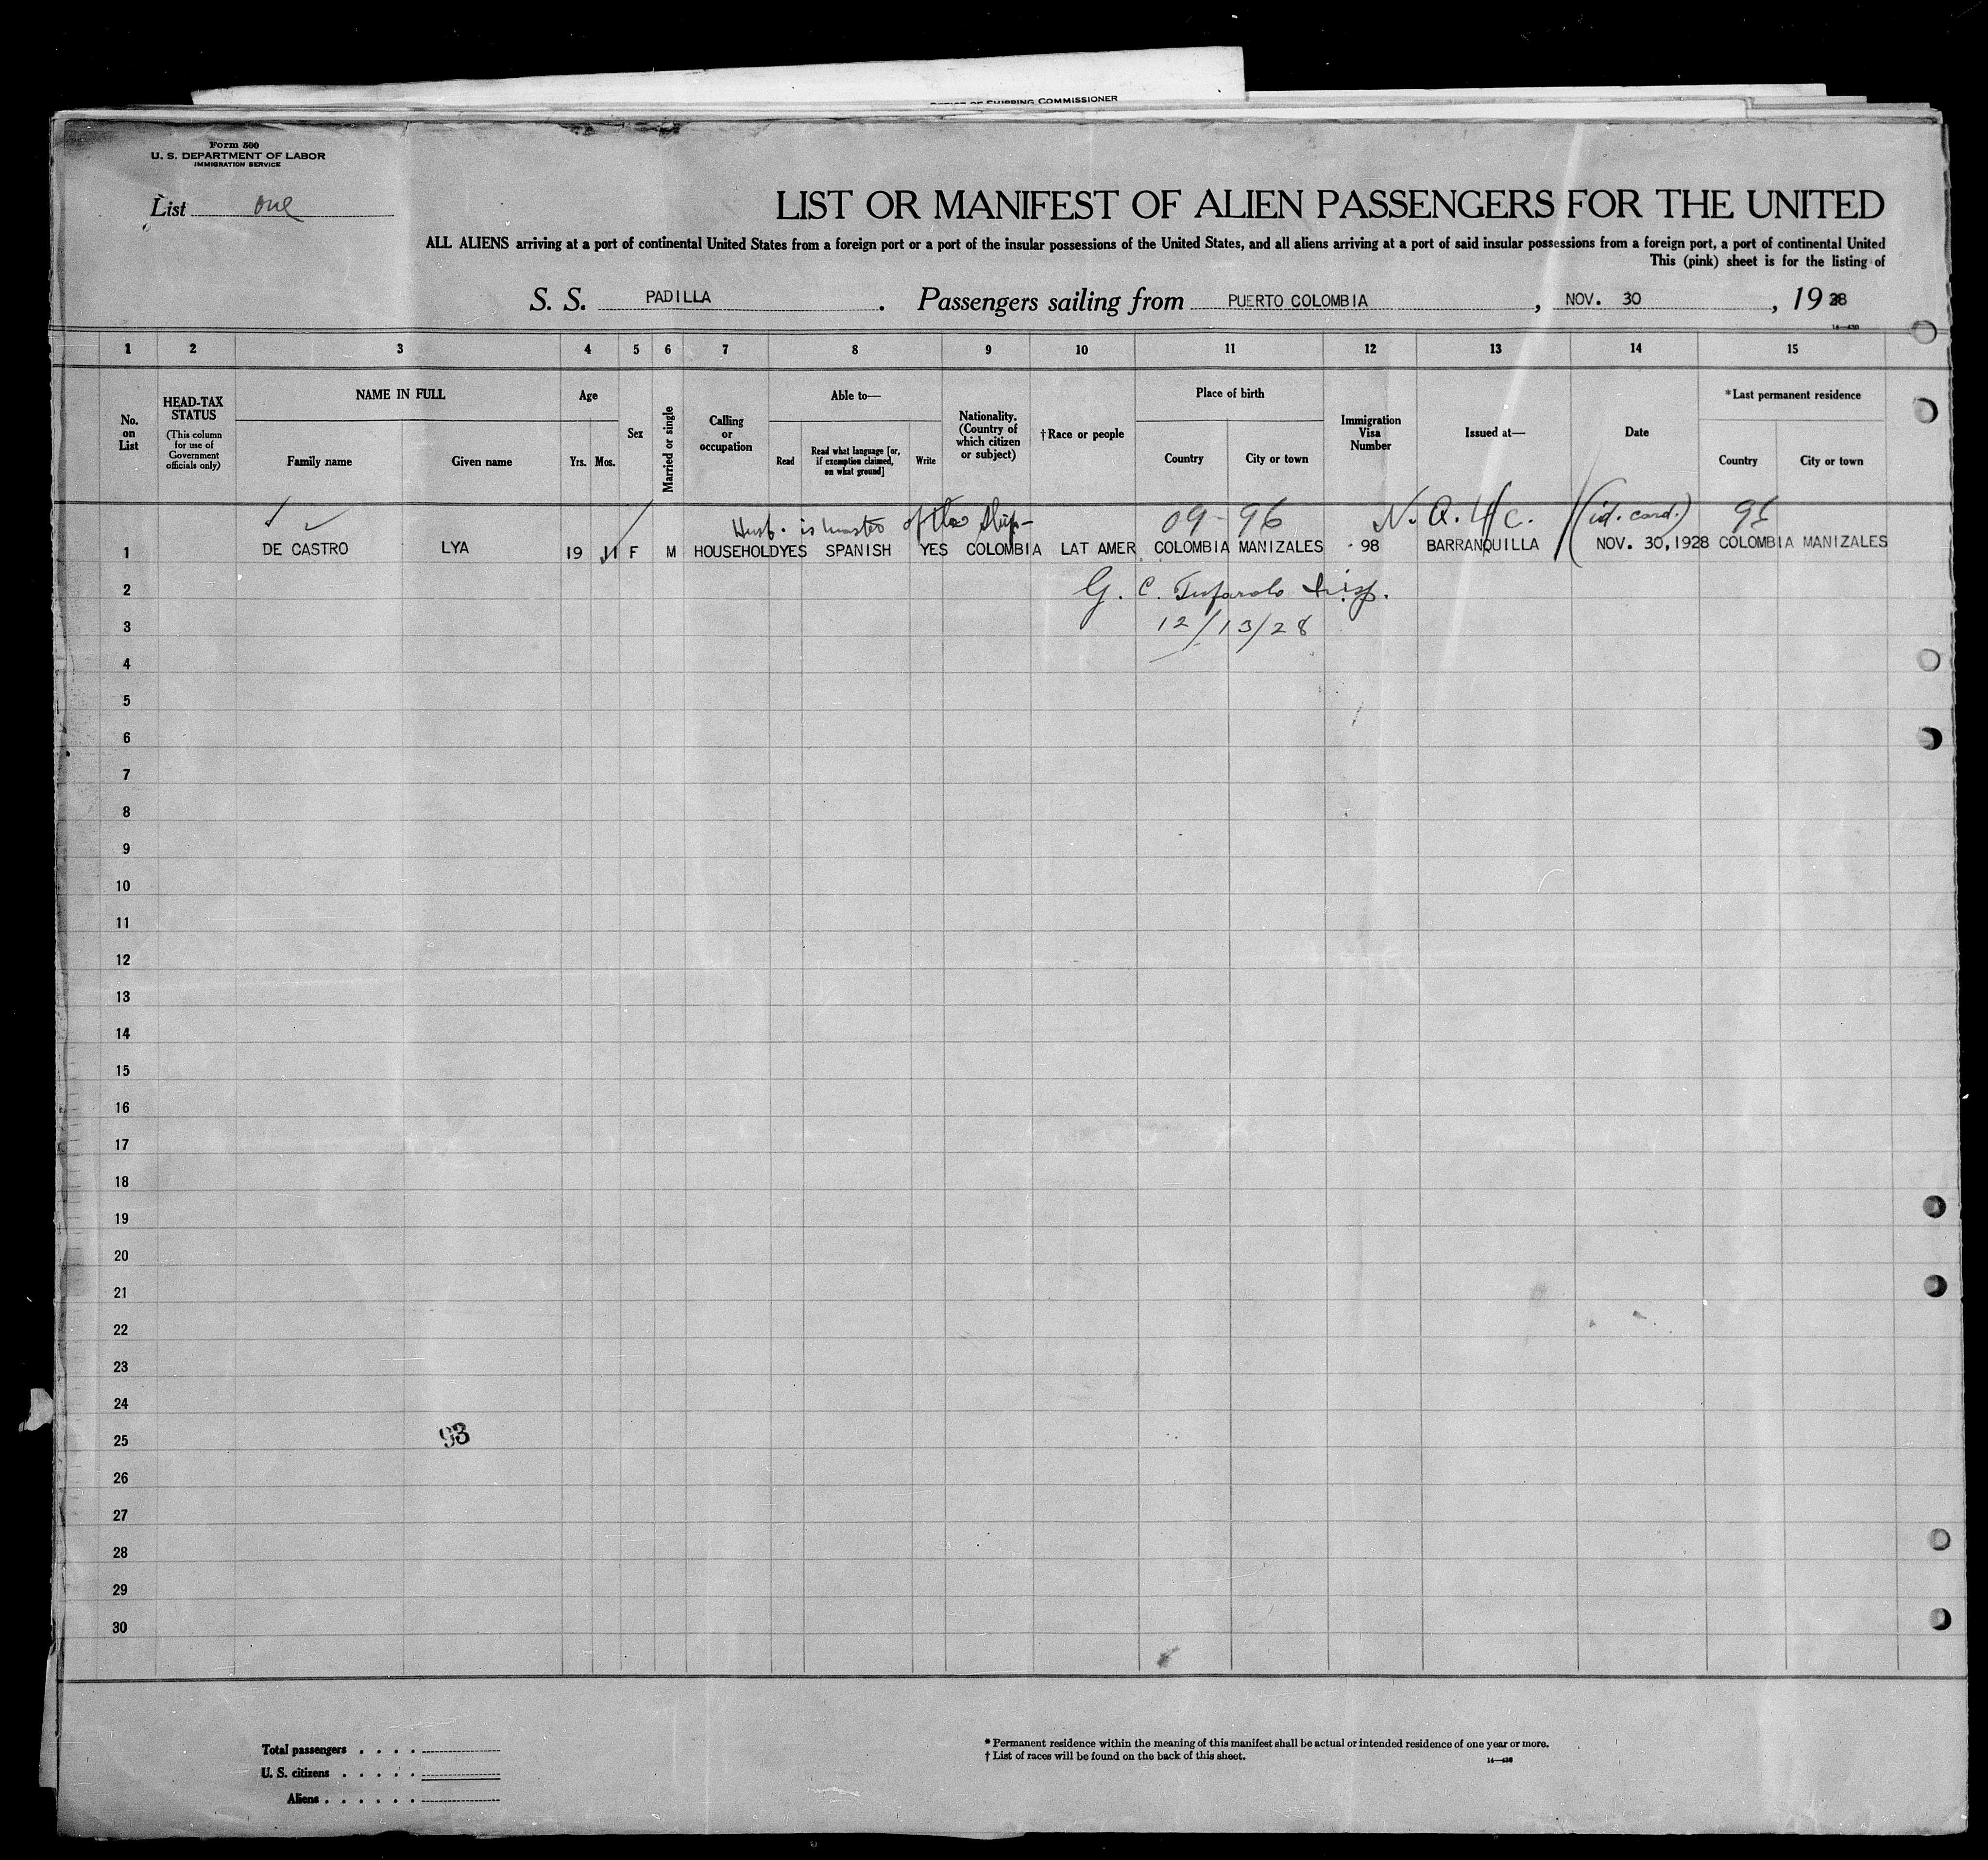 OFFICE OF SHIPPING COMMISSIONER
Form 500
U. S. DEPARTMENT OF LABOR
IMMIGRATION SERVICE
List one
LIST OR MANIFEST OF ALIEN PASSENGERS FOR THE UNITED
ALL ALIENS arriving at a port of continental United States from a foreign port or a port of the insular possessions of the United States, and all aliens arriving at a port of said insular possessions from a foreign port, a port of continental United
This (pink) sheet is for the listing of
S. S. PADILLA. Passengers sailing from PUERTO COLOMBIA, NOV. 30, 1928
1 2 3 4 5 6 7 8 9 10 11 12 13 14 15
No. on List
HEAD-TAX STATUS
(This column for use of Government officials only)
NAME IN FULL
Family name
Given name
Age
Yrs. Mos.
Sex
Married or single
Calling or occupation
Able to—
Read
Read what language [or, if exemption claimed, on what ground]
Write
Nationality. (Country of which citizen or subject)
†Race or people
Place of birth
Country
City or town
Immigration Visa Number
Issued at—
Date
*Last permanent residence
Country
City or town
Husb. is master of the ship-
09-96
(id. card.)
1 DE CASTRO LYA 19 11 F M HOUSEHOLD YES SPANISH YES COLOMBIA LAT AMER COLOMBIA MANIZALES 98 BARRANQUILLA NOV. 30, 1928 COLOMBIA MANIZALES
2
G. C.
3
12/13/28
4
5
6
7
8
9
10
11
12
13
14
15
16
17
18
19
20
21
22
23
24
25
93
26
27
28
29
30
Total passengers . . . .
U. S. citizens . . . . .
Aliens . . . . . .
* Permanent residence within the meaning of this manifest shall be actual or intended residence of one year or more.
† List of races will be found on the back of this sheet.